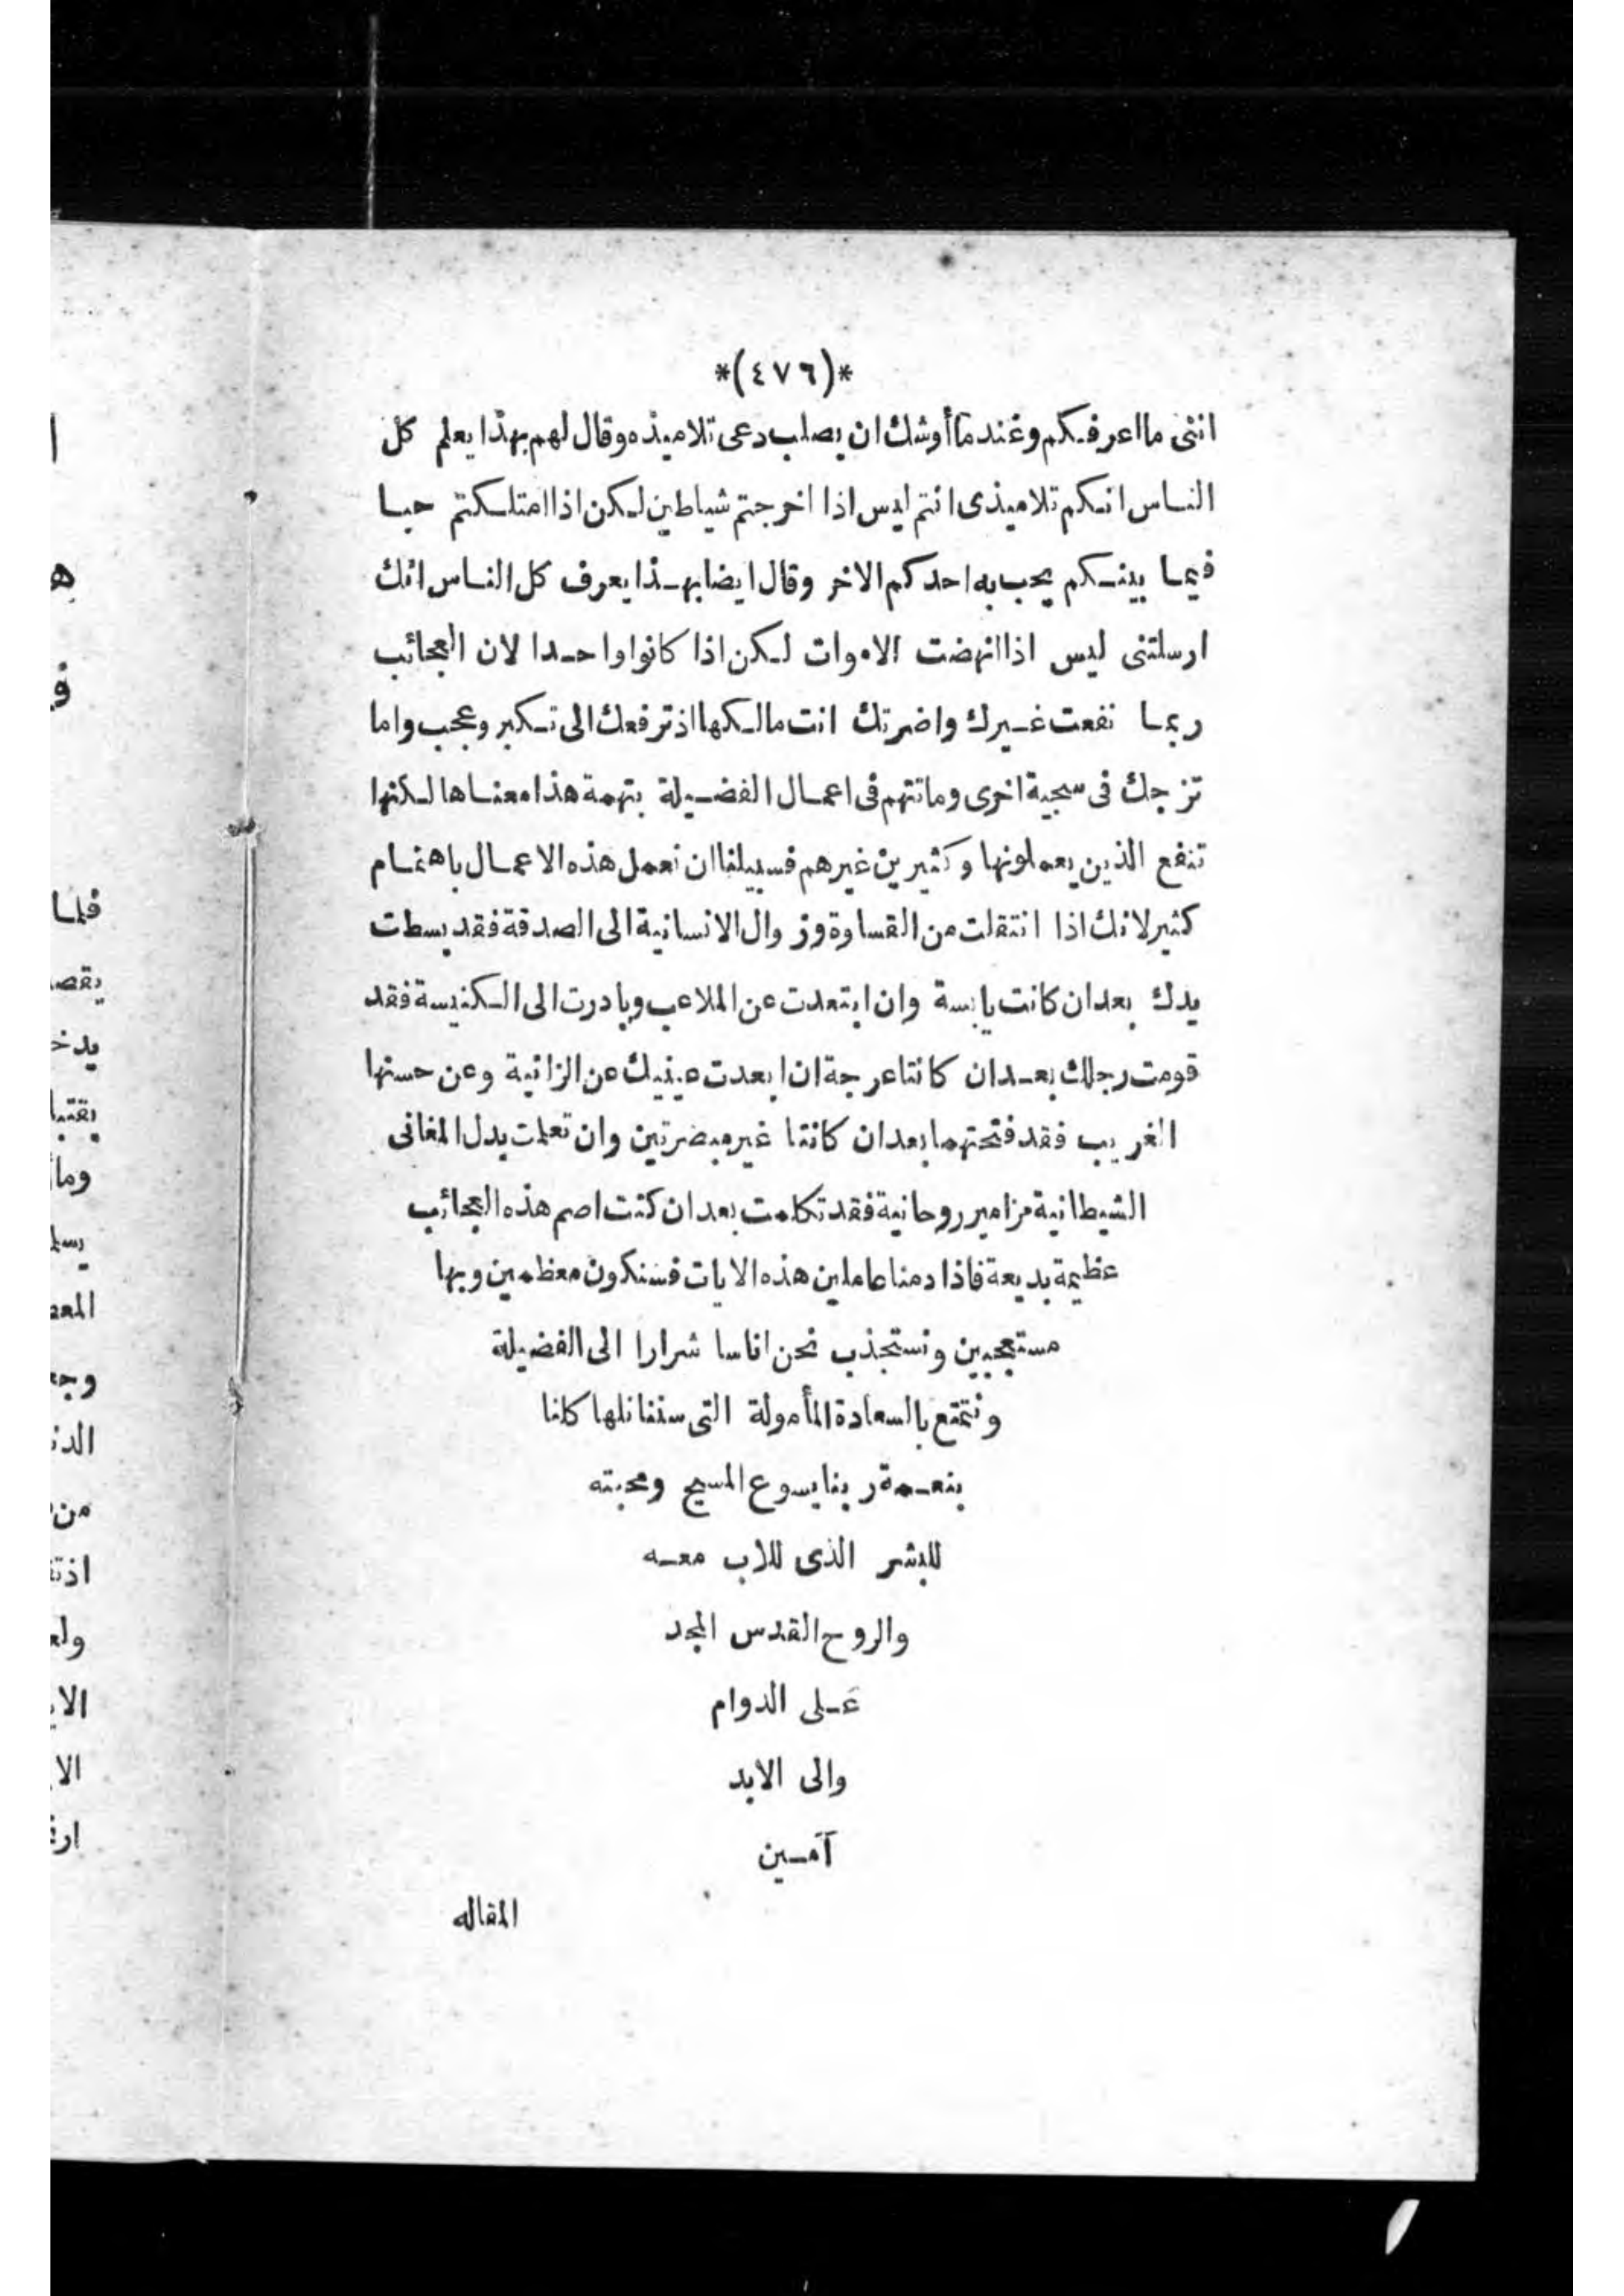 *(٤٧٦)*
اننى ما اعرفكم وعندما أوشك ان يصلب دعى تلاميذه وقال لهم بهذا يعلم كل
الناس انكم تلاميذى انتم ليس اذا اخرجتم شياطين لكن اذا امتلكتم حبا
فيما بينكم يحب به احدكم الاخر وقال ايضا بهذا يعرف كل الناس انك
ارسلتنى ليس اذا انهضت الاموات لكن اذا كانوا واحدا لان العجائب
ربما نفعت غيرك واضرتك انت مالكها اذ ترفعك الى تكبر وعجب واما
تزجك فى سجية اخرى وما تتهم فى اعمال الفضيلة بتهمة هذا معناها لكنها
تنفع الذين يعملونها وكثيرين غيرهم فسبيلنا ان نعمل هذه الاعمال باهتمام
كثير لانك اذا انتقلت من القساوة وزوال الانسانية الى الصدقة فقد بسطت
يدك بعد ان كانت يابسة وان ابتعدت عن الملاعب وبادرت الى الكنيسة فقد
قومت رجلك بعد ان كانتا عرجة ان ابعدت عينيك عن الزانية وعن حسنها
الغريب فقد فتحتهما بعد ان كانتا غير مبصرتين وان تعلمت بدل المغانى
الشيطانية مزامير روحانية فقد تكلمت بعد ان كنت اصم هذه العجائب
عظيمة بديعة فاذا دمنا عاملين هذه الايات فسنكون معظمين وبها
مستعجبين ونستجذب نحن اناسا شرارا الى الفضيلة
ونتمتع بالسعادة المأمولة التى سننانلها كلنا
بنعمة ربنا يسوع المسيح ومحبته
للبشر الذى للاب معه
والروح القدس المجد
على الدوام
والى الابد
آمين
المقاله